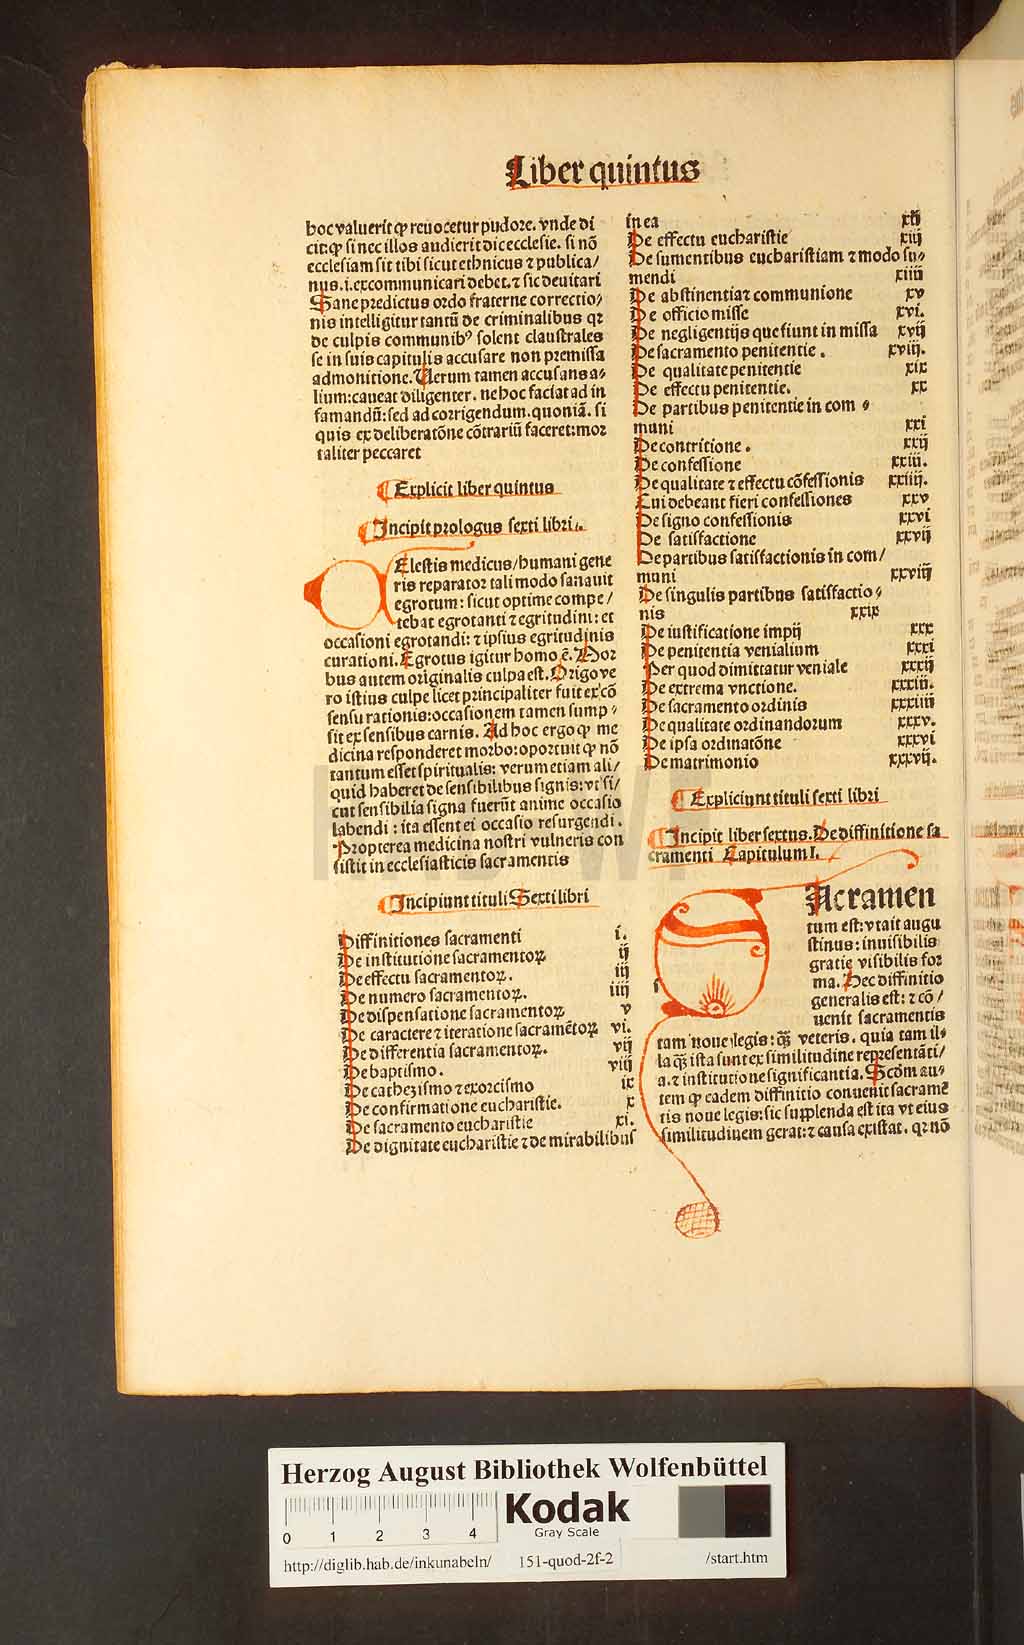 Liber quintus
hoc valuerit ꝙ reuocetur pudore. vnde di
cit:ꝙ si nec illos audierit dic ecclesie. si nō
ecclesiam sit tibi sicut ethnicus ⁊ publica/
nus .i. excommunicari debet. ⁊ sic deuitari
Sane predictus ordo fraterne correctio/
nis intelligitur tantū de criminalibus qꝛ
de culpis communibꝰ solent claustrales
se in suis capitulis accusare non premissa
admonitione. Uerum tamen accusans a⸗
lium: caueat diligenter. ne hoc faciat ad in
famandū: sed ad corrigendum. quoniā. si
quis ex deliberatōne cōtrariū faceret: mor
taliter peccaret
Explicit liber quintus
Incipit prologus sexti libri.
Elestis medicus/humani gene
ris reparator tali modo sanauit
egrotum: sicut optime compe/
tebat egrotanti ⁊ egritudini: et
occasioni egrotandi: ⁊ ipsius egritudinis
curationi. Egrotus igitur homo ē. Mor
bus autem originalis culpa est. Origo ve
ro istius culpe licet principaliter fuit ex cō
sensu rationis: occasionem tamen sump⸗
sit ex sensibus carnis. Ad hoc ergo ꝙ me
dicina responderet morbo: oportuit ꝙ nō
tantum esset spiritualis: verum etiam ali/
quid haberet de sensibilibus signis: vt si/
cut sensibilia signa fuerūt anime occasio
labendi: ita essent ei occasio resurgendi.
Propterea medicina nostri vulneris con
sistit in ecclesiasticis sacramentis
Incipiunt tituli Sexti libri
Diffinitiones sacramenti i.
De institutione sacramentoꝝ ij
De effectu sacramentoꝝ. iij
De numero sacramentoꝝ. iiij
De dispensatione sacramentoꝝ v
De caractere ⁊ iteratione sacramētoꝝ vi.
De differentia sacramentoꝝ. vij
De baptismo. viij
De cathezismo ⁊ exorcismo ix
De confirmatione eucharistie. x
De sacramento eucharistie xi.
De dignitate eucharistie ⁊ de mirabilibus
in ea xij
De effectu eucharistie xiij
De sumentibus eucharistiam ⁊ modo su⸗
mendi xiiij
De abstinentia ⁊ communione xv
De officio misse xvi.
De negligentijs que fiunt in missa xvij
De sacramento penitentie. xviij.
De qualitate penitentie xix
De effectu penitentie. xx
De partibus penitentie in com⸗
muni xxi
De contritione. xxij
De confessione xxiij.
De qualitate ⁊ effectu cōfessionis xxiiij.
Cui debeant fieri confessiones xxv
De signo confessionis xxvi
De satisfactione xxvij
De partibus satisfactionis in com/
muni xxviij
De singulis partibus satisfactio⸗
nis xxix
De iustificatione impij xxx
De penitentia venialium xxxi
Per quod dimittatur veniale xxxij
De extrema vnctione. xxxiij.
De sacramento ordinis xxxiiij
De qualitate ordinandorum xxxv.
De ipsa ordinatōne xxxvi
De matrimonio xxxvij.
Expliciunt tituli sexti libri
Incipit liber sextus. De diffinitione sa
cramenti Capitulum I.
Acramen
tum est: vt ait augu
stinus: inuisibilis
gratie visibilis for
ma. Hec diffinitio
generalis est: ⁊ cō/
uenit sacramentis
tam noue legis: qꝫ̄ veteris. quia tam il⸗
la qꝫ̄ ista sunt ex similitudine representāti/
a. ⁊ institutione significantia. Scōm au⸗
tem ꝙ eadem diffinitio conuenit sacramē
tis noue legis: sic supplenda est ita vt eius
similitudinem gerat: ⁊ causa existat. qꝛ nō
Herzog August Bibliothek Wolfenbüttel
Kodak
Gray Scale
0 1 2 3 4
http://diglib.hab.de/inkunabeln/ 151-quod-2f-2 /start.htm